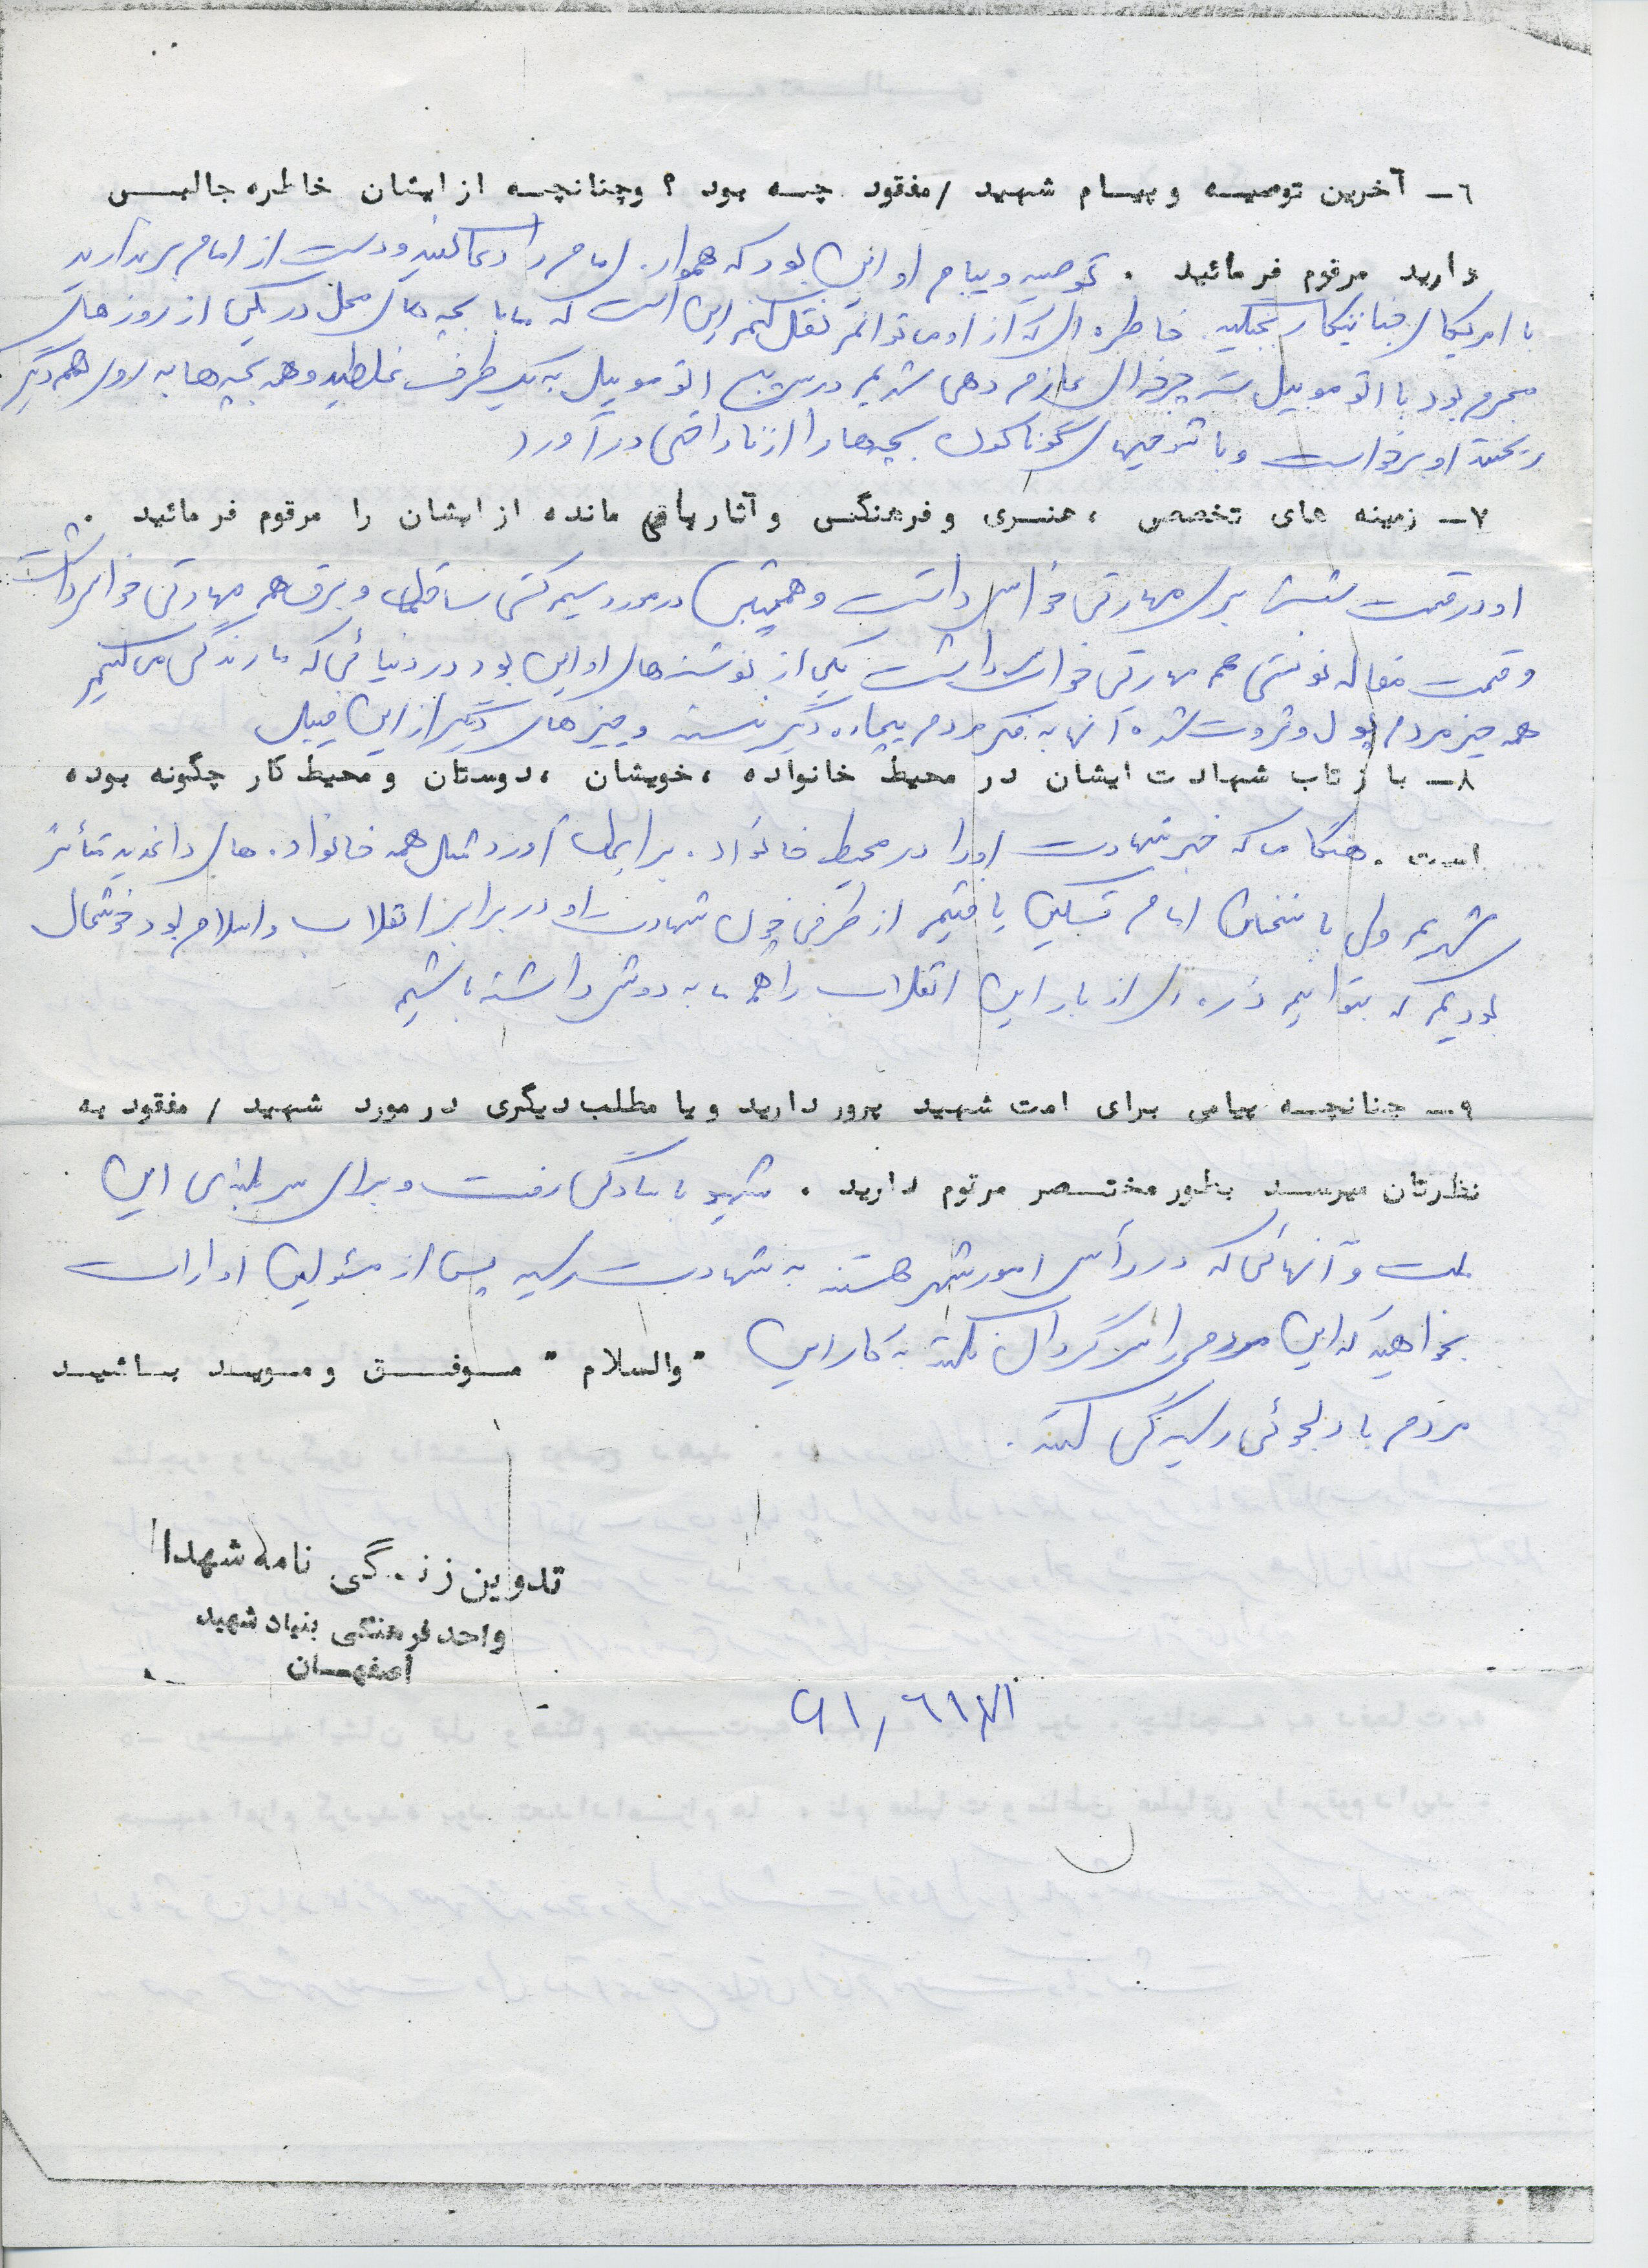 ٦ـ آخرین توصیه و پیام شهید / مفقود چه بود ؟ و چنانچه از ایشان خاطره جالبی
دارید مرقوم فرمائید . توصیه و پیام او این بود که همواره امام را دعا کنید و دست از امام برندارید
با امریکای جنایتکار بجنگید. خاطره ای که از او می توانم نقل کنم این است که ما با بچه های محل در یکی از روزهای
محرم بود با اتوموبیل سه چرخه ای عازم دهی شدیم در سر پیچ اتوموبیل به یک طرف غلطید و همه بچه ها به روی هم دیگر
ریختند او برخواست و با شوخیهای گوناگون بچه ها را از ناراحتی در آورد
٧ـ زمینه های تخصصی ، هنری و فرهنگی و آثار باقی مانده از ایشان را مرقوم فرمائید .
او در قسمت نقشه بری مهارتی خواص داشت و همچنین در مورد سیم کشی ساختمان و برق هم مهارتی خواص داشت
و قسمت مقاله نویسی هم مهارتی خواص داشت یکی از نوشته های او این بود در دنیائی که ما زندگی می کنیم
همه چیز مردم پول و ثروت شده آنها به فکر مردم بیچاره دیگر نیستند و چیزهای دیگر از این قبیل
٨ـ بازتاب شهادت ایشان در محیط خانواده ، خویشان ، دوستان و محیط کار چگونه بوده
است . هنگامی که خبر شهادت او را در محیط خانواده برایمان آورد مثل همه خانواده های داغدیده متأثر
شدیم ولی با سخنان امام تسکین یافتیم از طرفی چون شهادت او در برابر انقلاب و اسلام بود خوشحال
بودیم که بتوانیم ذره ای از بار این انقلاب را هم ما به دوش داشته باشیم
٩ـ چنانچه پیامی برای امت شهید پرور دارید و یا مطلب دیگری در مورد شهید / مفقود به
نظرتان میرسد بطور مختصر مرقوم دارید . شهید با سادگی رفت و برای سربلندی این
ملت و آنهائی که در رأس امور شهر هستند به شهادت رسید پس از مسئولین ادارات
بخواهید که این مردم را سرگردان نکنند به کار این " والسلام " موفق و موید باشید
مردم با دلجوئی رسیدگی کنند.
تدوین زندگی نامه شهدا
واحد فرهنگی بنیاد شهید
اصفهان